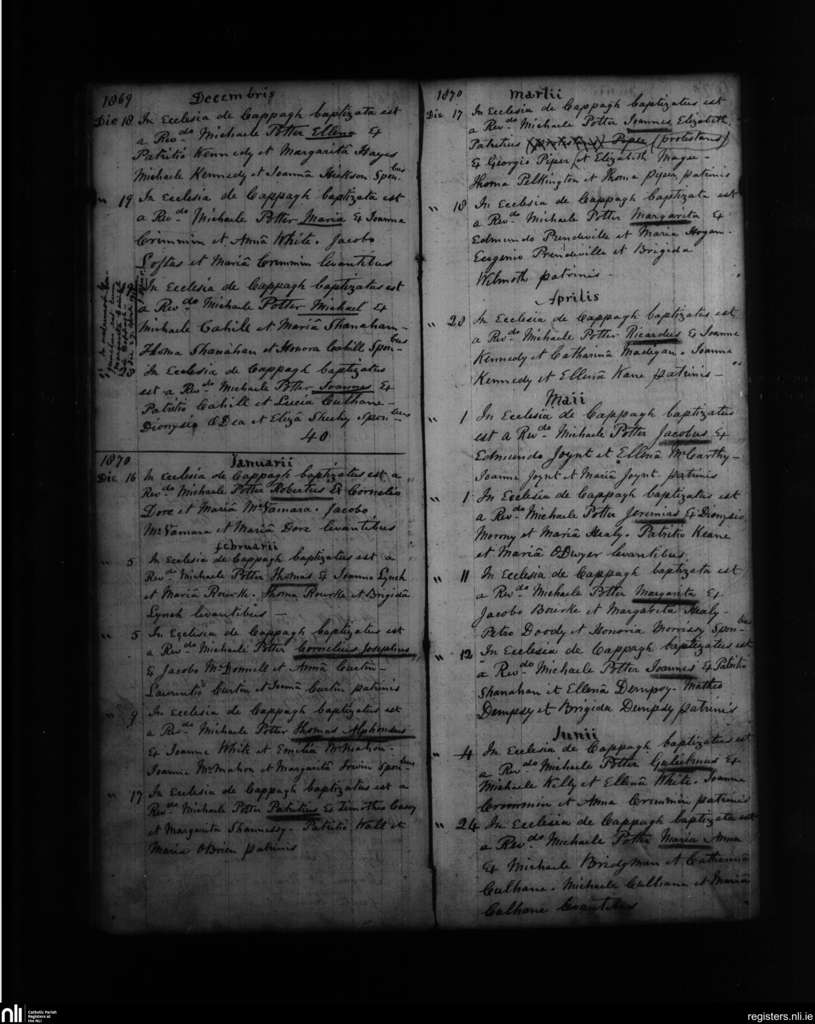 1869 Decembris
Die 18 In Ecclesia de Cappagh baptizata est
a Revdo Michaele Potter Ellena Ex
Patritio Kennedy et Margaritâ Hayes
Michaele Kennedy et Joannâ Hickson Sponbus
" 19 In Ecclesia de Cappagh baptizata est
a Revdo Michaele Potter Maria Ex Joanne
Crimmin et Annâ White. Jacobo
Loftas et Mariâ Crimmin levantibus
In Ecclesia de Cappagh baptizatus est
a Revdo Michaele Potter Michael Ex
Michaele Cahill et Mariâ Shanahan-
Thoma Shanahan et Honora Cahill Sponbus
In Ecclesia de Cappagh baptizatus
est a Revdo Michaele Potter Joannes Ex
Patritio Cahill et Lucia Culhane-
Dionysio O'Dea et Elizâ Sheehy Sponbus
40
1870 Januarii
Die 16 In Ecclesia de Cappagh baptizatus est a
Revdo Michaele Potter Robertus Ex Cornelio
Dore et Mariâ McNamara. Jacobo
McNamara et Mariâ Dore levantibus
februarii
" 5 In Ecclesia de Cappagh baptizatus est a
Revdo Michaele Potter Thomas Ex Joanne Lynch
et Mariâ Rourke. Thoma Rourke et Brigidâ
Lynch levantibus —
" 5 In Ecclesia de Cappagh baptizatus est
a Revdo Michaele Potter Cornelius Josephus
Ex Jacobo McDonnell et Annâ Curtin-
Laurentio Curtin et Curtin patrinis
" 9 In Ecclesia de Cappagh baptizatus est
a Revdo Michaele Potter Thomas Alphonsus
Ex Joanne White et Emiliâ McMahon-
Joanne McMahon et Margaritâ Irwin Sponbus
" 17 In Ecclesia de Cappagh baptizatus est a
Revdo Michaele Potter Patritius Ex Timotheo Casey
et Margarita Shannessy. Patritio Wall et
Maria OBrien patrinis
1870 Martii
Die 17 In Ecclesia de Cappagh baptizatus est
a Revdo Michaele Potter Joannes Elizabeth
Patritius Piper (protestans)
Ex Georgio Piper et Elizabeth Magee-
Thoma Pelkington et Thoma Piper patrinis
" 18 In Ecclesia de Cappagh baptizata est
a Revdo Michaele Potter Margarita Ex
Edmundo Prendiville et Maria Hogan-
Eugenio Prendiville et Brigida
Wilmoth patrinis -
Aprilis
" 28 In Ecclesia de Cappagh baptizatus est
a Revdo Michaele Potter Ricardus Ex Joanne
Kennedy et Catharinâ Madigan. Joanne
Kennedy et Ellenâ Kane patrinis-
Maii
" 1 In Ecclesia de Cappagh baptizatus
est a Revdo Michaele Potter Jacobus Ex
Edmundo Joynt et Ellenâ McCarthy-
Joanne Joynt et Mariâ Joynt patrinis
" 1 In Ecclesia de Cappagh baptizatus est
a Revdo Michaele Potter Jeremias Ex Dionysio
Morony et Mariâ Healy. Patritio Keane
et Mariâ ODwyer levantibus
" 11 In Ecclesia de Cappagh baptizata est
a Revdo Michaele Potter Margarita Ex
Jacobo Bourke et Margarita Healy-
Petro Doody et Honoria Morrissy Sponbus
" 12 In Ecclesia de Cappagh baptizatus est
a Revdo Michaele Potter Joannes Ex Patritio
Shanahan et Ellenâ Dempsy. Matheo
Dempsy et Brigida Dempsy patrinis
Junii
" 4 In Ecclesia de Cappagh baptizatus est
a Revdo Michaele Potter Gulielmus Ex
Michaele Kelly et Ellenâ White. Joanne
Crimmin et Anna Crimmin patrinis
" 24 In Ecclesia de Cappagh baptizata est
a Revdo Michaele Potter Maria Anna
Ex Michaele Bridgman et Catharinâ
Culhane. Michaele Culhane et Mariâ
Culhane levantibus
nli Catholic Parish
Registers at
the NLI
registers.nli.ie